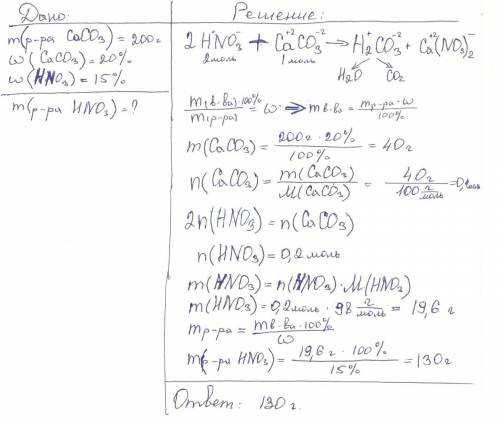 Дано:
m(р-ра CaCO₃) = 200г
ω (CaCO₃) = 20%
ω (HNO₃) = 15%
m(р-ра HNO₃) = ?
Решение:
2H⁺NO₃⁻ + Ca⁺²CO₃⁻² → H₂⁺CO₃⁻² + Ca⁺²(NO₃)₂⁻
2моль 1моль
H₂O CO₂
m(в-ва)·100% / m(р-ра) = ω ⇒ m в-ва = mр-ра·ω / 100%
m(CaCO₃) = 200г·20% / 100% = 40г
n(CaCO₃) = m(CaCO₃) / M(CaCO₃) = 40г / 100 г/моль = 0,4моль
2n(HNO₃) = n(CaCO₃)
n(HNO₃) = 0,2моль
m(HNO₃) = n(HNO₃)·M(HNO₃)
m(HNO₃) = 0,2моль · 98 г/моль = 19,6 г
mр-ра = mв-ва·100% / ω
m(р-ра HNO₃) = 19,6г · 100% / 15% = 130г
Ответ: 130г.